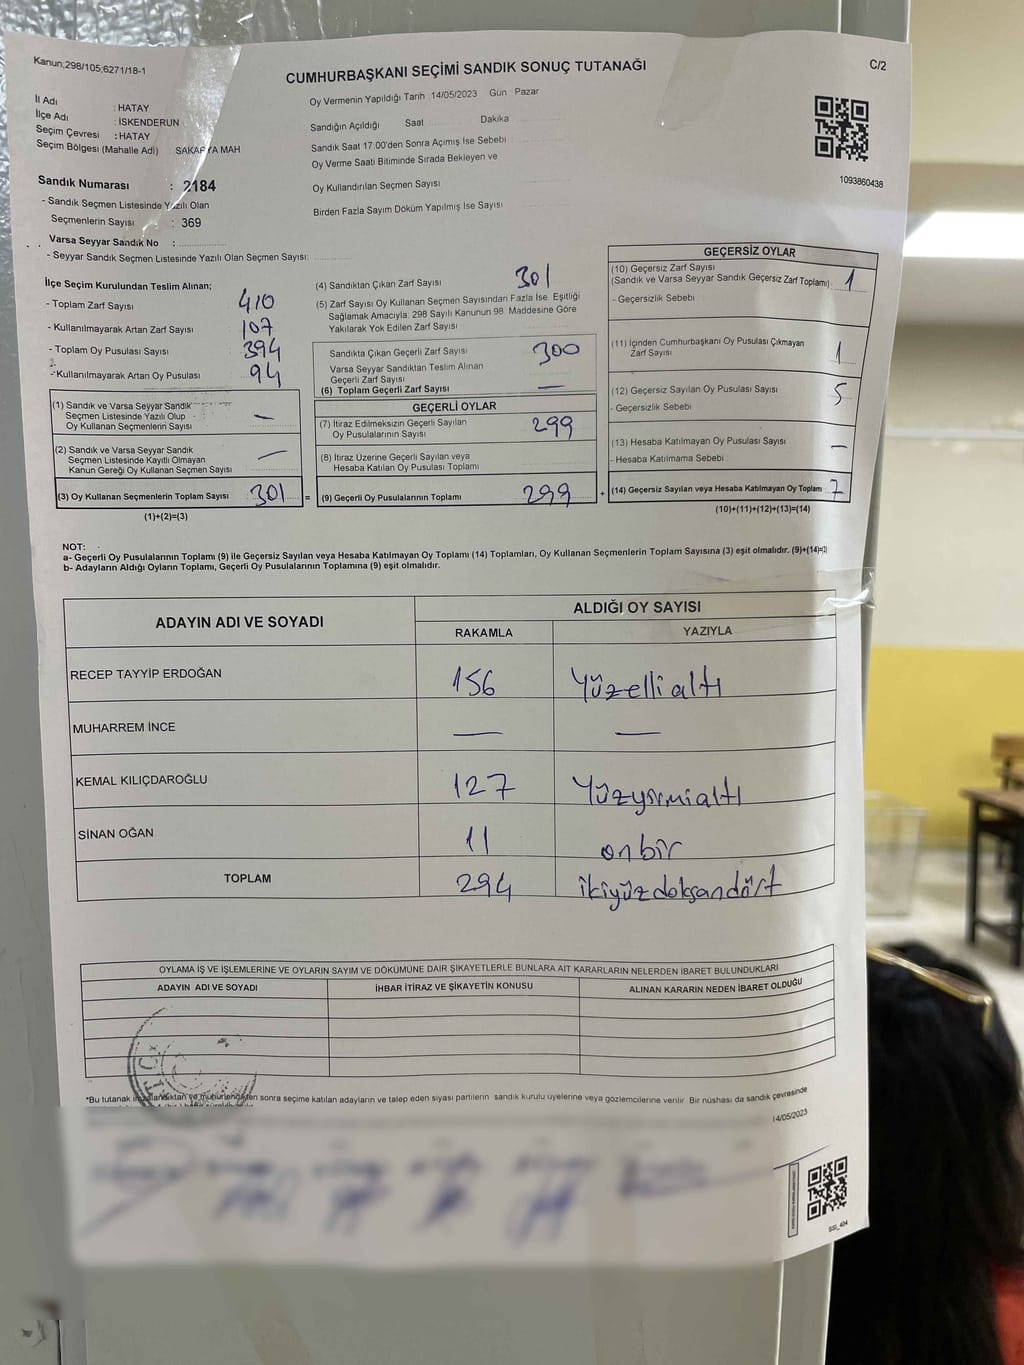 Kanun;298/105;6271/18-1
C/2
CUMHURBAŞKANI SEÇİMİ SANDIK SONUÇ TUTANAĞI
İl Adı : HATAY
İlçe Adı : İSKENDERUN
Seçim Çevresi : HATAY
Seçim Bölgesi (Mahalle Adı) : SAKARYA MAH
Sandık Numarası : 2184
- Sandık Seçmen Listesinde Yazılı Olan
Seçmenlerin Sayısı : 369
Varsa Seyyar Sandık No :
- Seyyar Sandık Seçmen Listesinde Yazılı Olan Seçmen Sayısı:
Oy Vermenin Yapıldığı Tarih 14/05/2023 Gün Pazar
Sandığın Açıldığı Saat Dakika
Sandık Saat 17:00'den Sonra Açımış İse Sebebi
Oy Verme Saati Bitiminde Sırada Bekleyen ve
Oy Kullandırılan Seçmen Sayısı
Birden Fazla Sayım Döküm Yapılmış İse Sayısı
1093860438
İlçe Seçim Kurulundan Teslim Alınan;
- Toplam Zarf Sayısı 410
- Kullanılmayarak Artan Zarf Sayısı 107
- Toplam Oy Pusulası Sayısı 394
- Kullanılmayarak Artan Oy Pusulası 94
(1) Sandık ve Varsa Seyyar Sandık
Seçmen Listesinde Yazılı Olup
Oy Kullanan Seçmenlerin Sayısı —
(2) Sandık ve Varsa Seyyar Sandık
Seçmen Listesinde Kayıtlı Olmayan
Kanun Gereği Oy Kullanan Seçmen Sayısı —
(3) Oy Kullanan Seçmenlerin Toplam Sayısı 301 =
(1)+(2)=(3)
(4) Sandıktan Çıkan Zarf Sayısı 301
(5) Zarf Sayısı Oy Kullanan Seçmen Sayısından Fazla İse, Eşitliği
Sağlamak Amacıyla, 298 Sayılı Kanunun 98. Maddesine Göre
Yakılarak Yok Edilen Zarf Sayısı
Sandıkta Çıkan Geçerli Zarf Sayısı 300
Varsa Seyyar Sandıktan Teslim Alınan
Geçerli Zarf Sayısı
(6) Toplam Geçerli Zarf Sayısı —
GEÇERLİ OYLAR
(7) İtiraz Edilmeksizin Geçerli Sayılan
Oy Pusulalarının Sayısı 299
(8) İtiraz Üzerine Geçerli Sayılan veya
Hesaba Katılan Oy Pusulası Toplamı
(9) Geçerli Oy Pusulalarının Toplamı 299 +
GEÇERSİZ OYLAR
(10) Geçersiz Zarf Sayısı
(Sandık ve Varsa Seyyar Sandık Geçersiz Zarf Toplamı) 1
- Geçersizlik Sebebi
(11) İçinden Cumhurbaşkanı Oy Pusulası Çıkmayan
Zarf Sayısı 1
(12) Geçersiz Sayılan Oy Pusulası Sayısı 5
- Geçersizlik Sebebi
(13) Hesaba Katılmayan Oy Pusulası Sayısı —
- Hesaba Katılmama Sebebi
(14) Geçersiz Sayılan veya Hesaba Katılmayan Oy Toplamı 7
(10)+(11)+(12)+(13)=(14)
NOT:
a- Geçerli Oy Pusulalarının Toplamı (9) ile Geçersiz Sayılan veya Hesaba Katılmayan Oy Toplamı (14) Toplamları, Oy Kullanan Seçmenlerin Toplam Sayısına (3) eşit olmalıdır. (9)+(14)=(3)
b- Adayların Aldığı Oyların Toplamı, Geçerli Oy Pusulalarının Toplamına (9) eşit olmalıdır.
ADAYIN ADI VE SOYADI
ALDIĞI OY SAYISI
RAKAMLA YAZIYLA
RECEP TAYYİP ERDOĞAN 156 Yüzelli altı
MUHARREM İNCE — —
KEMAL KILIÇDAROĞLU 127 Yüzyirmialtı
SİNAN OĞAN 11 onbir
TOPLAM 294 ikiyüz doksandört
OYLAMA İŞ VE İŞLEMLERİNE VE OYLARIN SAYIM VE DÖKÜMÜNE DAİR ŞİKAYETLERLE BUNLARA AİT KARARLARIN NELERDEN İBARET BULUNDUKLARI
ADAYIN ADI VE SOYADI İHBAR İTİRAZ VE ŞİKAYETİN KONUSU ALINAN KARARIN NEDEN İBARET OLDUĞU
*Bu tutanak imzalandıktan ve mühürlendikten sonra seçime katılan adayların ve talep eden siyasi partilerin sandık kurulu üyelerine veya gözlemcilerine verilir. Bir nüshası da sandık çevresinde
14/05/2023
SSİ_404